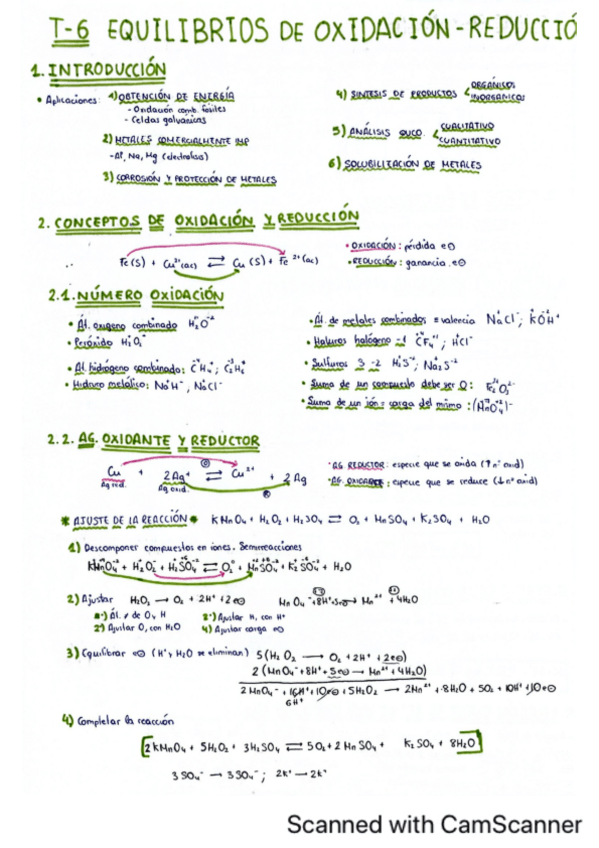 T-6 EQUILIBRIOS DE OXIDACIÓN-REDUCCIÓ
1. INTRODUCCIÓN
• Aplicaciones: 1) OBTENCIÓN DE ENERGÍA
- Oxidación comb. fósiles
- Celdas galvánicas
2) METALES COMERCIALMENTE IMP
- Al, Na, Mg (electrolisis)
3) CORROSIÓN Y PROTECCIÓN DE METALES
4) SINTESIS DE PRODUCTOS < ORGÁNICOS
INORGÁNICOS
5) ANÁLISIS QUCO. < CUALITATIVO
CUANTITATIVO
6) SOLUBILIZACIÓN DE METALES
2. CONCEPTOS DE OXIDACIÓN Y REDUCCIÓN
Fe(s) + Cu²⁺(ac) ⇄ Cu(s) + Fe²⁺(ac)
• OXIDACIÓN: pérdida e⊖
• REDUCCIÓN: ganancia e⊖
2.1. NÚMERO OXIDACIÓN
• Át. oxígeno combinado H₂O⁻²
• Peróxido H₂O₂
• Át. hidrógeno combinado: CH₄; C₂H₆
• Hidruro metálico: Na⁺H⁻, NaCl⁻
• Át. de metales combinados = valencia NaCl; KOH
• Haluros halógeno -1 CF₄; HCl
• Sulfuros -2 H₂S; Na₂S⁻²
• Suma de un compuesto debe ser 0:
• Suma de un ión = carga del mismo: (MnO₄)⁻
2.2. AG. OXIDANTE Y REDUCTOR
Cu + 2Ag⁺ ⇄ Cu²⁺ + 2Ag
Ag red. Ag oxid.
• AG. REDUCTOR: especie que se oxida (↑nº oxid)
• AG. OXIDANTE: especie que se reduce (↓nº oxid)
* AJUSTE DE LA REACCIÓN * KMnO₄ + H₂O₂ + H₂SO₄ ⇄ O₂ + MnSO₄ + K₂SO₄ + H₂O
1) Descomponer compuestos en iones. Semirreacciones
KMnO₄ + H₂O₂ + H₂SO₄ ⇄ O₂ + MnSO₄ + K₂SO₄ + H₂O
2) Ajustar H₂O₂ → O₂ + 2H⁺ + 2e⊖ MnO₄⁻ + 8H⁺ + 5e⊖ → Mn²⁺ + 4H₂O
1º) Át. ≠ de O y H 3º) Ajustar H, con H⁺
2º) Ajustar O, con H₂O 4) Ajustar carga e⊖
3) Equilibrar e⊖ (H⁺, H₂O se eliminan) 5(H₂O₂ → O₂ + 2H⁺ + 2e⊖)
2(MnO₄⁻ + 8H⁺ + 5e⊖ → Mn²⁺ + 4H₂O)
2MnO₄⁻ + 16H⁺ + 10e⊖ + 5H₂O₂ → 2Mn²⁺ + 8H₂O + 5O₂ + 10H⁺ + 10e⊖
6H⁺
4) Completar la reacción
2KMnO₄ + 5H₂O₂ + 3H₂SO₄ ⇄ 5O₂ + 2MnSO₄ + K₂SO₄ + 8H₂O
3SO₄⁻ → 3SO₄⁻; 2K⁺ → 2K⁺
Scanned with CamScanner